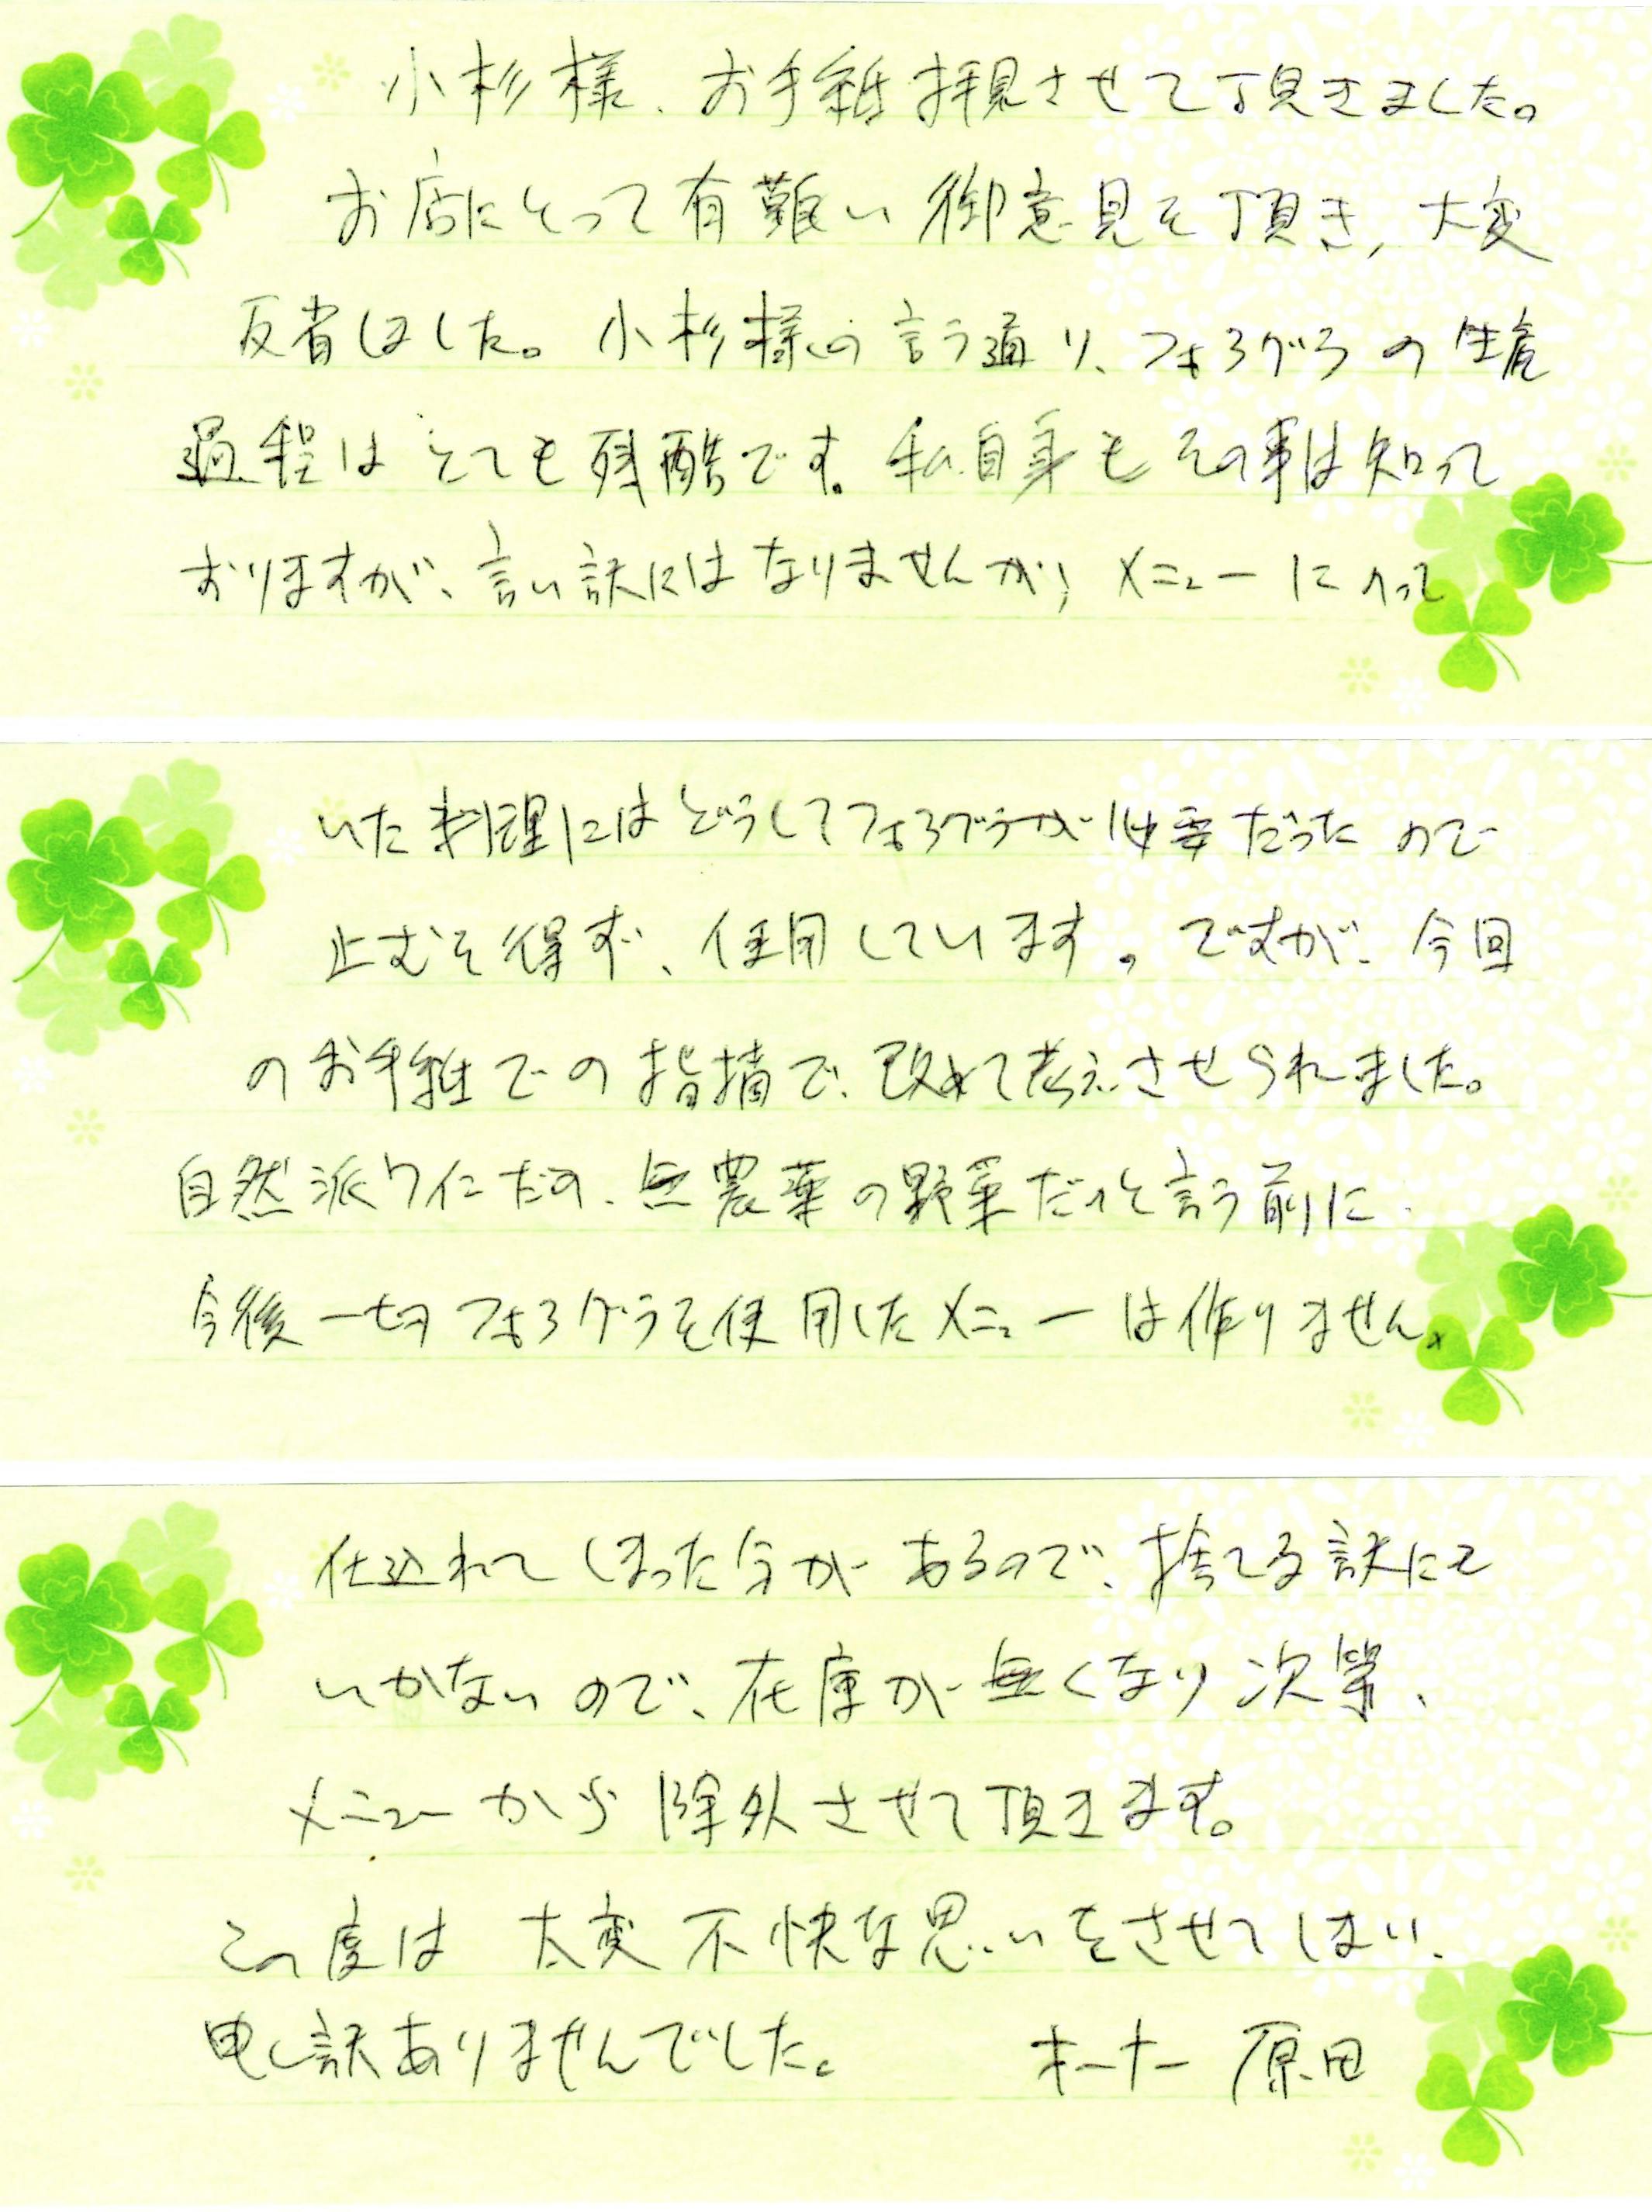 小杉様、お手紙拝見させて頂きました。
お店にとって有難い御意見を頂き、大変
反省しました。小杉様の言う通り、フォアグラの生産
過程はとても残酷です。私自身もその事は知って
おりますが、言い訳にはなりませんが、メニューに入って
いた料理にはどうしてフォアグラが必要だったので
止むを得ず、使用しています。ですが、今回
のお手紙での指摘で、改めて考えさせられました。
自然派ワインだの、無農薬の野菜だのと言う前に
今後一切フォアグラを使用したメニューは作りません。
仕込れてしまった分があるので、捨てる訳にも
いかないので、在庫が無くなり次第、
メニューから除外させて頂きます。
この度は大変不快な思いをさせてしまい、
申し訳ありませんでした。 オーナー 原田